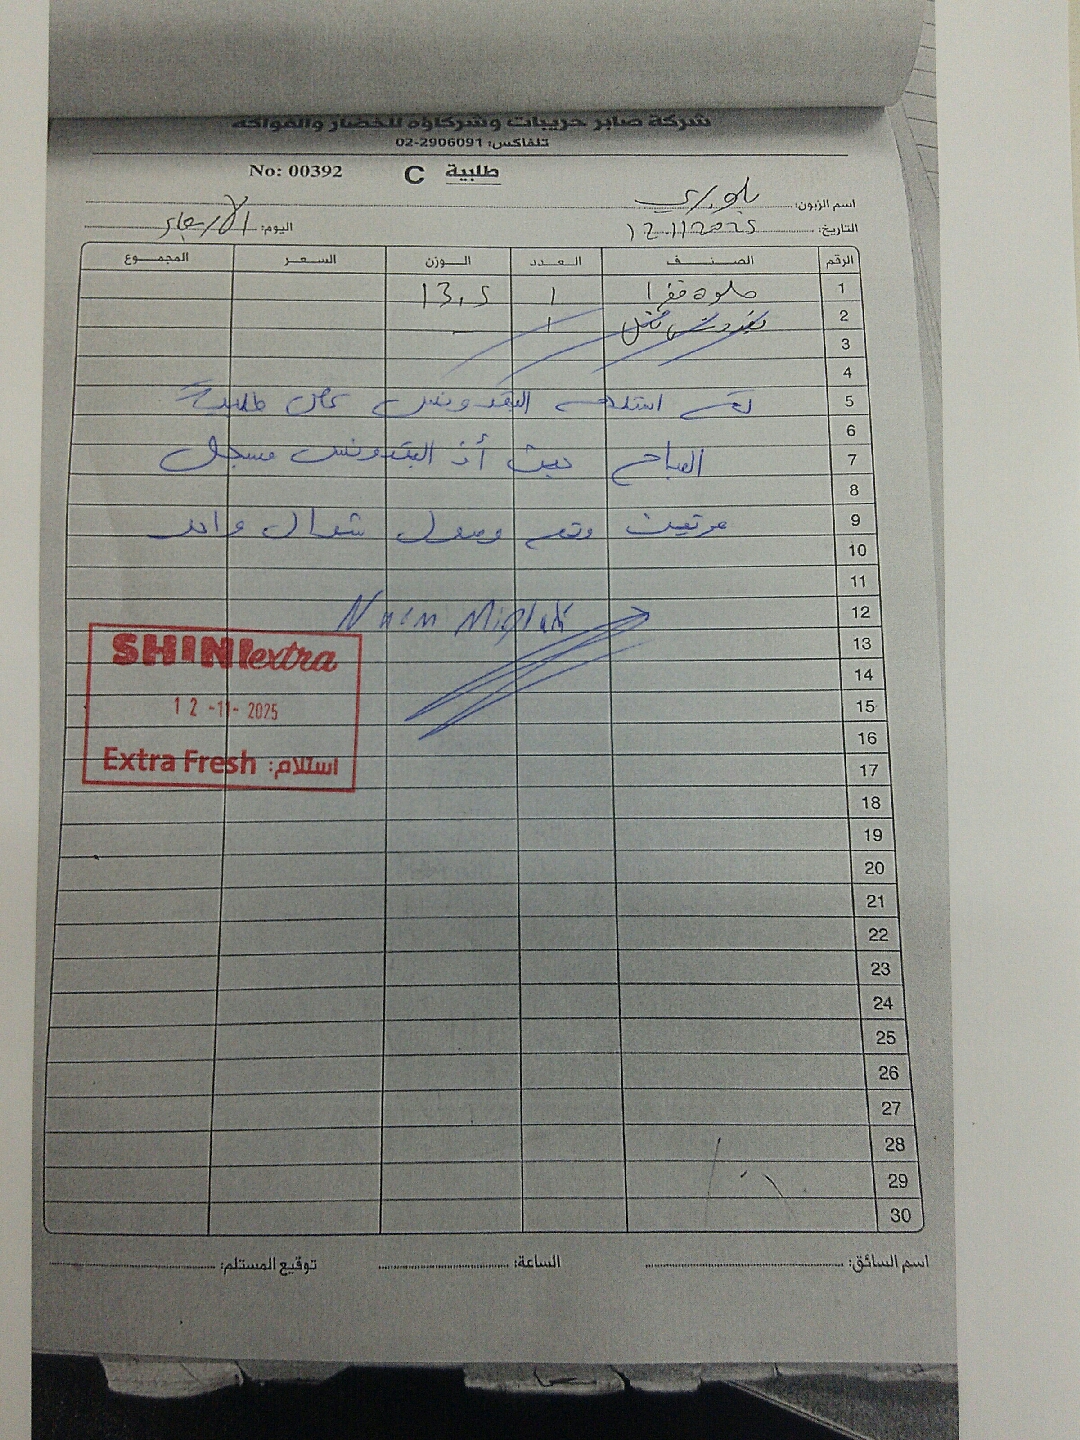 شركة صابر حريبات وشركاؤه للخضار والفواكه
تلفاكس: 02-2906091
No: 00392 C طلبية
اسم الزبون:
التاريخ: 12.11.2025 اليوم: الأربعاء
الرقم الصنف العدد الوزن السعر المجموع
1 1 13.5
2 بقدونس 1
3
4
5 تم استلام البقدونس على طلبية
6
7 الصباح حيث أن البقدونس مسجل
8
9 مرتين وتم وصول شوال واحد
10
11
12
13
14
15
16
17
18
19
20
21
22
23
24
25
26
27
28
29
30
SHINI extra
12-11-2025
Extra Fresh استلام:
اسم السائق: الساعة: توقيع المستلم: